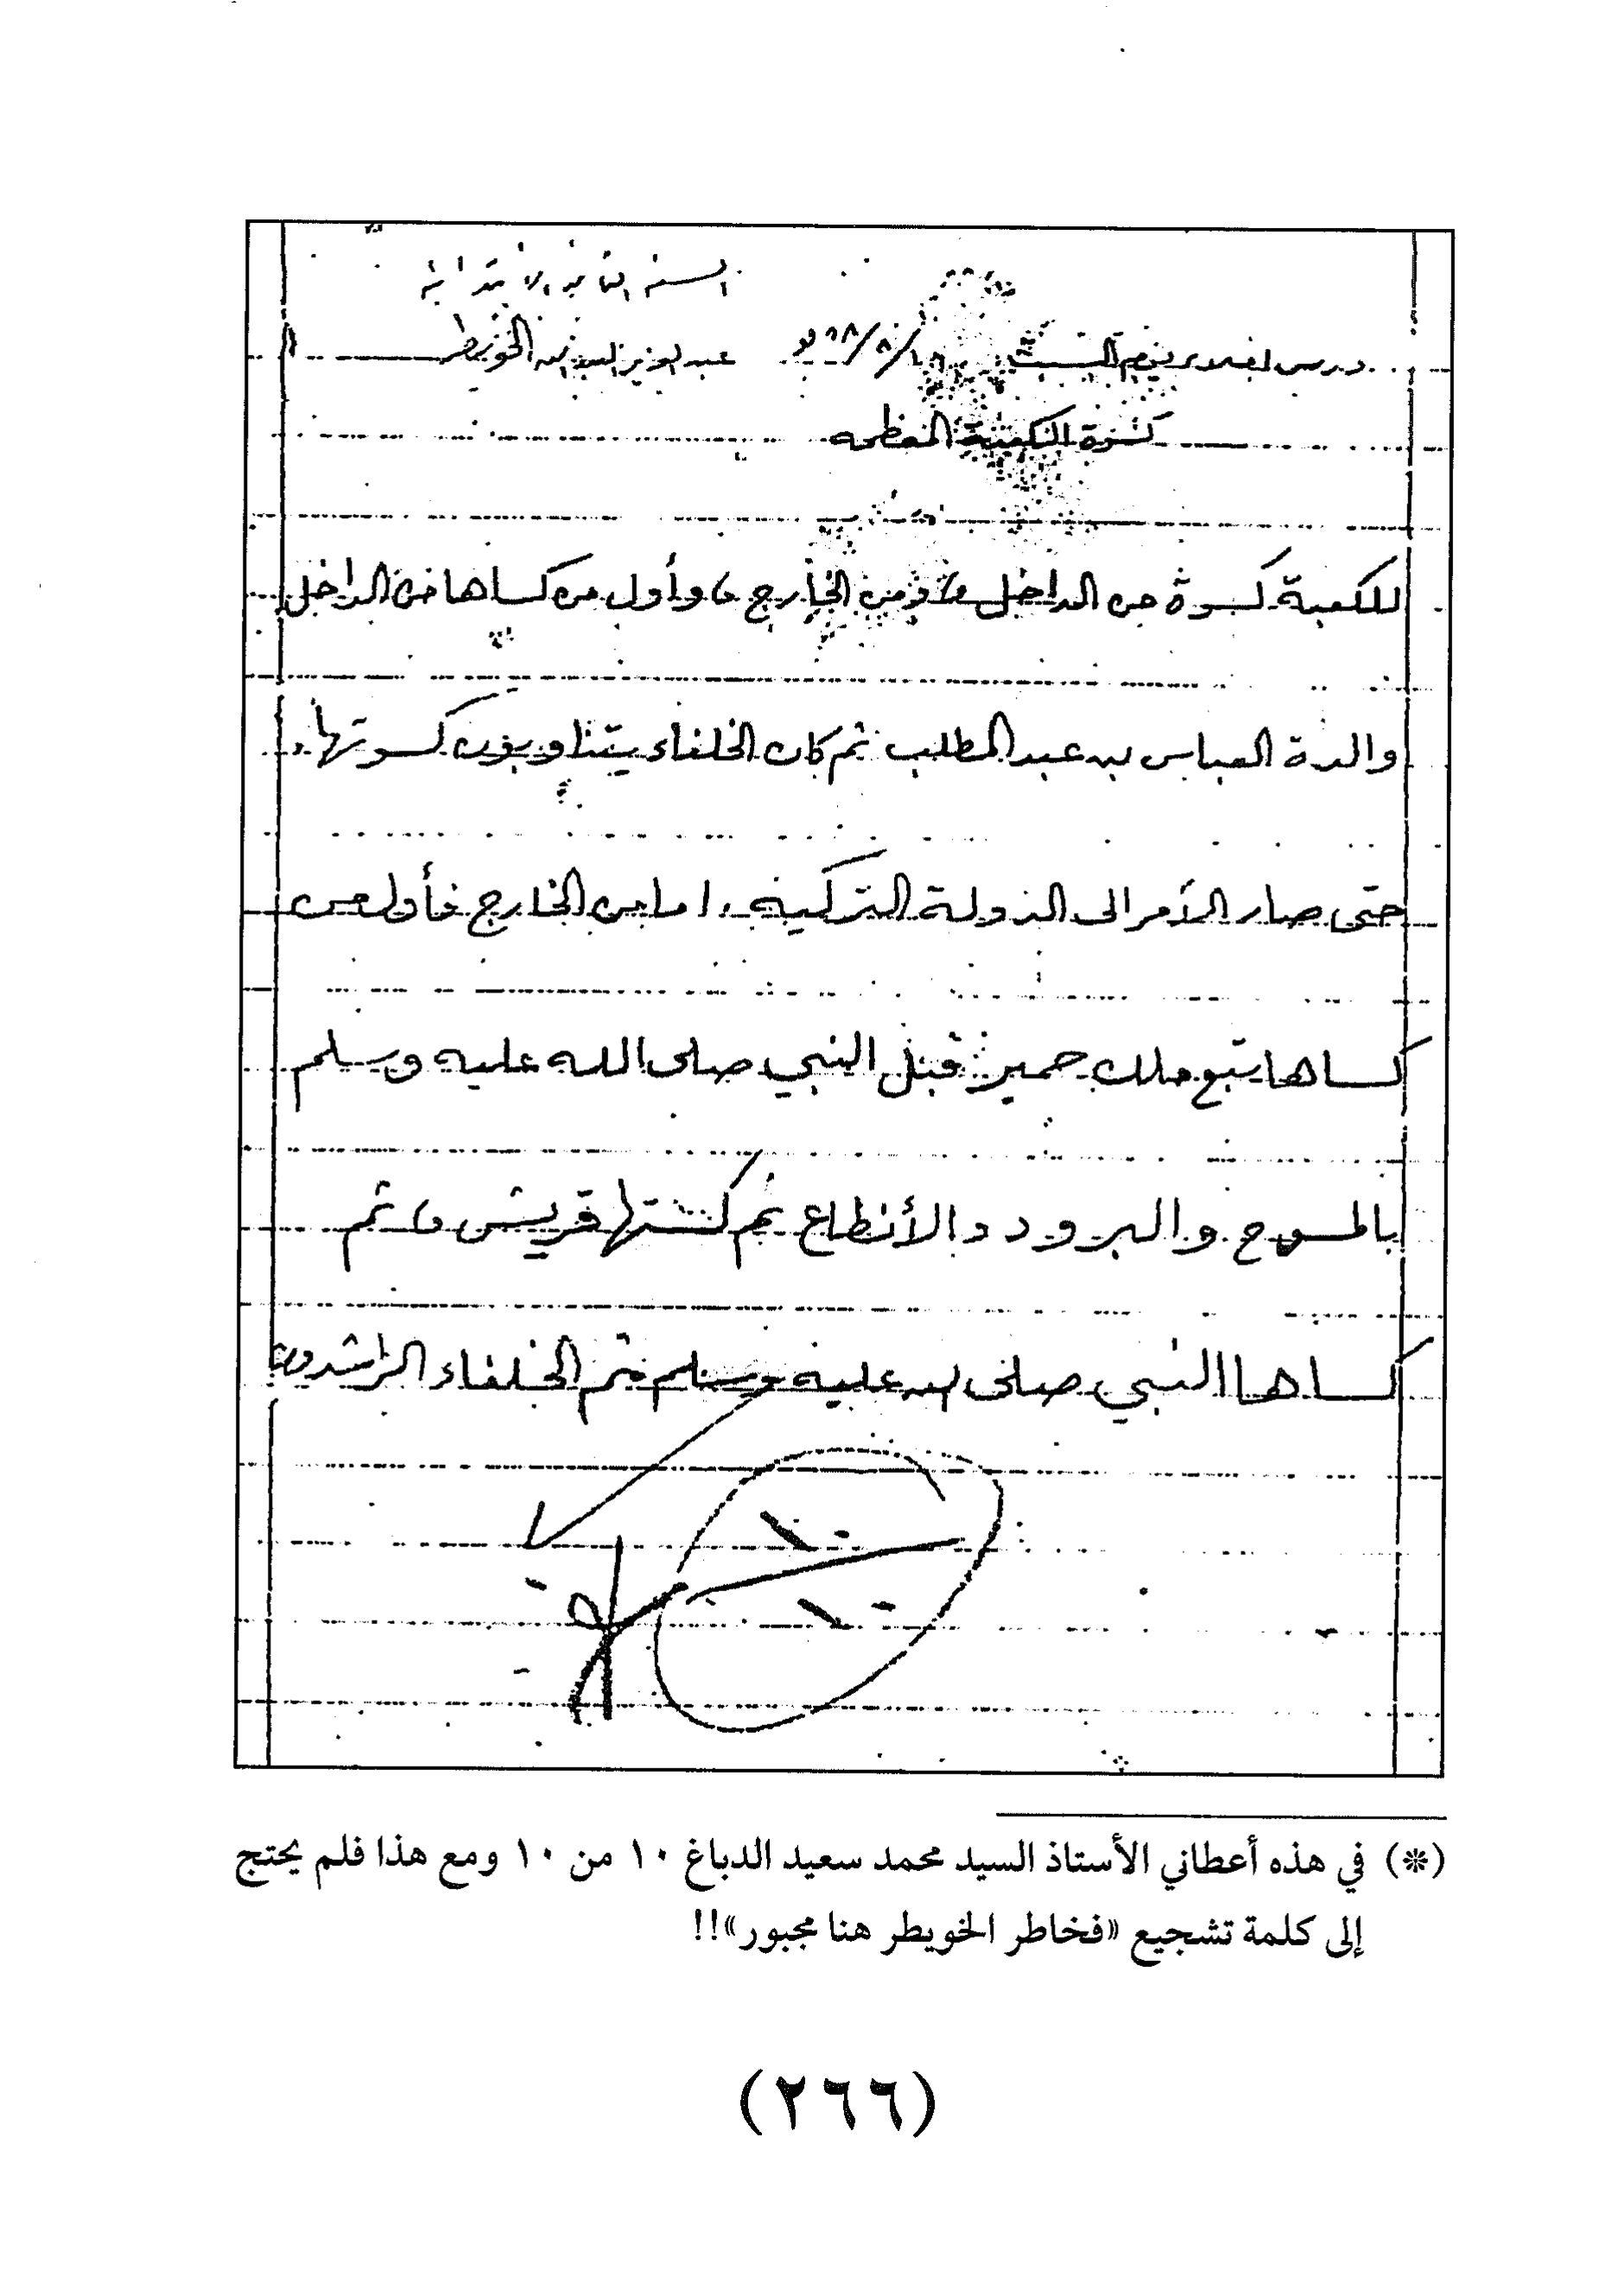 السنة الثانية الابتدائية
درس املاء يوم السبت عبد العزيز العبد الله الخويطر
كسوة الكعبة المعظمه
للكعبة كسوة من الداخل ، ومن الخارج ، وأول من كساها من الداخل
والدة العباس بن عبد المطلب ثم كان الخلفاء يتناوبون كسوتها
حتى صار الأمر الى الدولة التركيه . اما من الخارج فأول من
كساها تبع ملك حمير قبل النبي صلى الله عليه وسلم
بالمسوح والبرود والأنطاع ثم كستها قريش ، ثم
كساها النبي صلى الله عليه وسلم ثم الخلفاء الراشدون
١٠
١٠
(*) في هذه أعطاني الأستاذ السيد محمد سعيد الدباغ ١٠ من ١٠ ومع هذا فلم يحتج
إلى كلمة تشجيع «فخاطر الخويطر هنا مجبور»!!
(٢٦٦)